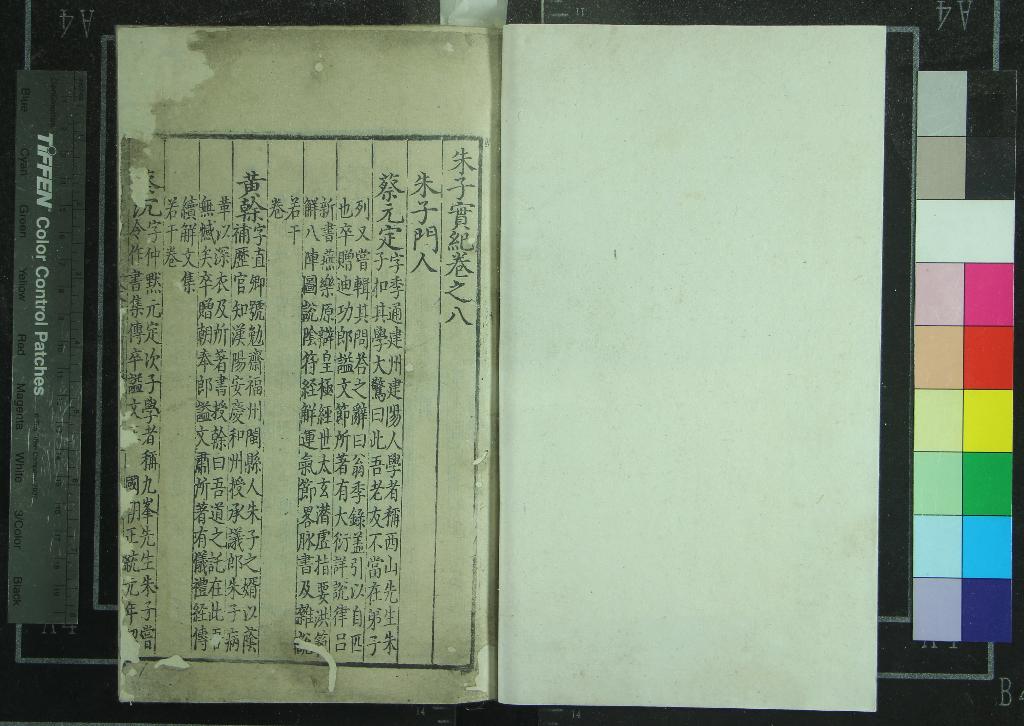 朱子實紀卷之八
朱子門人
蔡元定字季通建州建陽人學者稱西山先生朱
子扣其學大驚曰此吾老友不當在弟子
列又嘗輯其問答之辭曰翁季錄盖引以自匹
也卒贈迪功郎諡文節所著有大衍詳說律呂
新書燕樂原辯皇極經世太玄潜虛指要洪範
解八陣圖說陰符經解運氣節畧脉書及雜說
若干
卷
黃榦字直卿號勉齋福州閩縣人朱子之婿以蔭
補歷官知漢陽安慶和州授承議郎朱子病
革以深衣及所著書授榦曰吾道之託在此吾
無憾矣卒贈朝奉郎諡文肅所著有儀禮經傳
續解文集
若干卷
元字仲默元定次子學者稱九峯先生朱子嘗
令作書集傳卒諡文 國 正統元年
TIFFEN Color Control Patches
Blue Cyan Green Yellow Red Magenta White 3/Color Black
A4
A4
B4